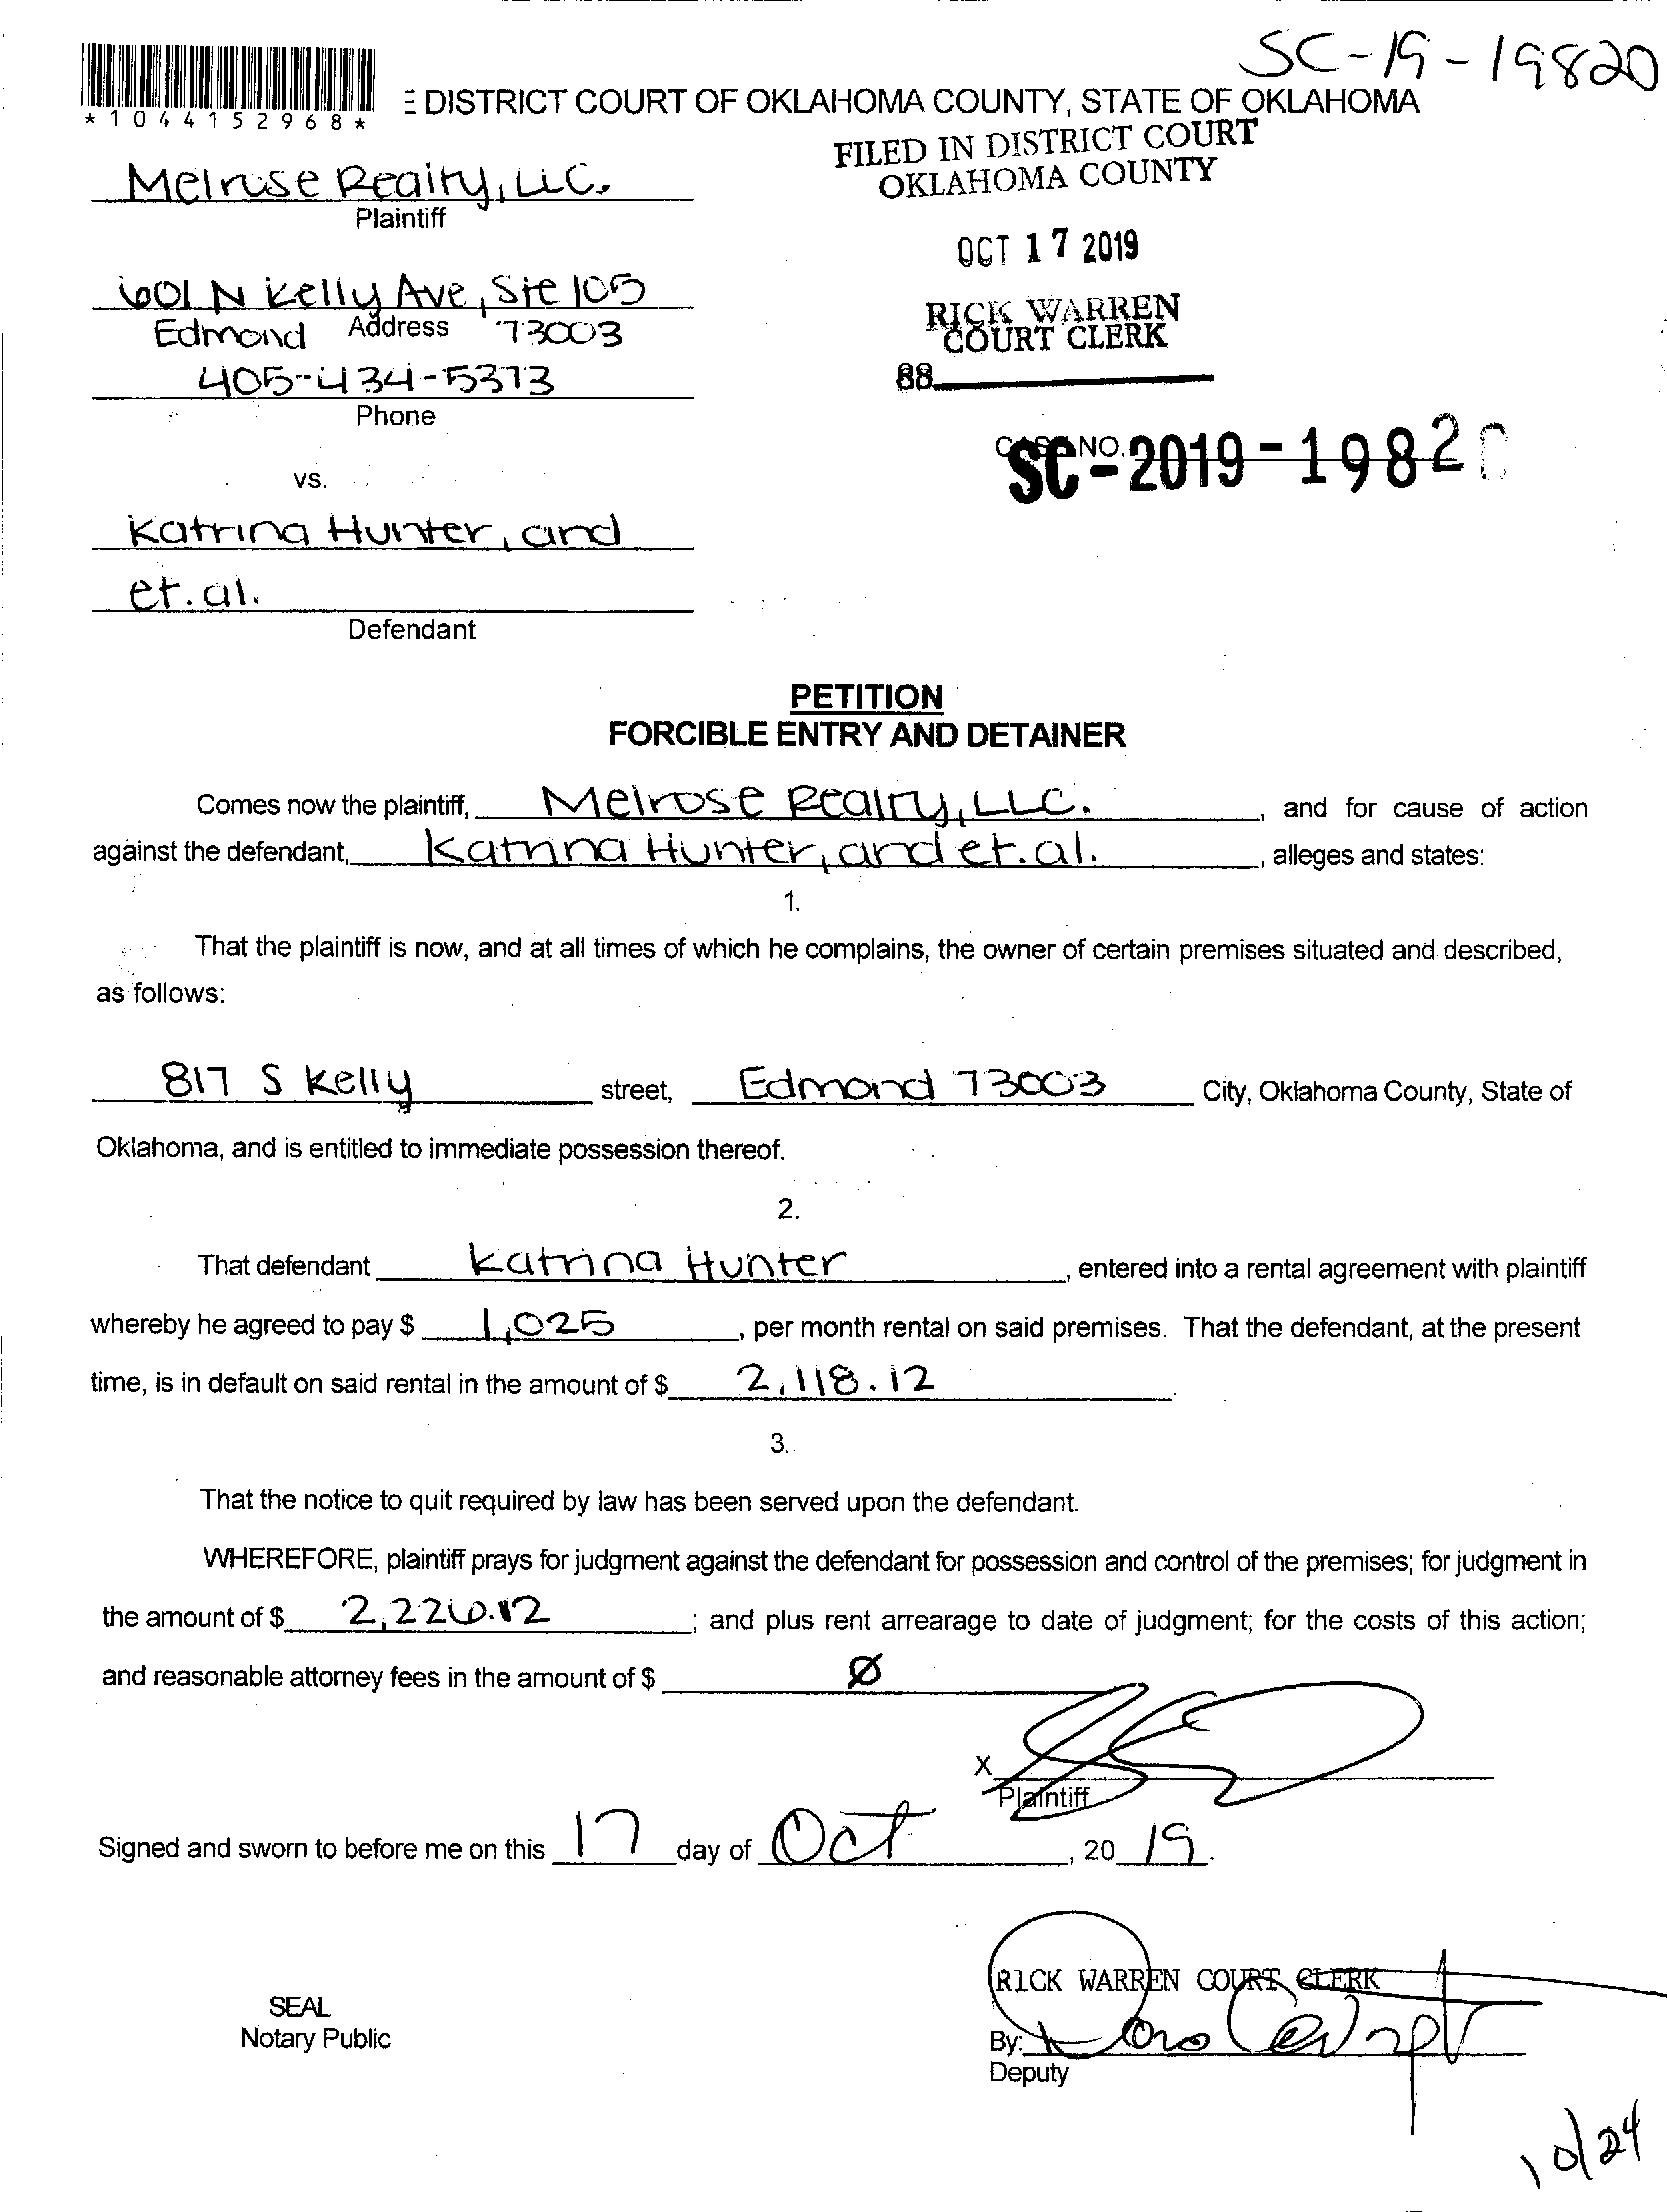 SC-19-19820
*1044152968*
E DISTRICT COURT OF OKLAHOMA COUNTY, STATE OF OKLAHOMA
FILED IN DISTRICT COURT
OKLAHOMA COUNTY
Melrose Realty, LLC.
Plaintiff
OCT 17 2019
601 N Kelly Ave, Ste 105
RICK WARREN
Edmond Address 73003
COURT CLERK
405-434-5373
88
Phone
CASE NO.
SC-2019-19820
vs.
Katrina Hunter, and
et. al.
Defendant
PETITION
FORCIBLE ENTRY AND DETAINER
Comes now the plaintiff, Melrose Realty, LLC. , and for cause of action
against the defendant, Katrina Hunter, and et. al. , alleges and states:
1.
That the plaintiff is now, and at all times of which he complains, the owner of certain premises situated and described,
as follows:
817 S Kelly street, Edmond 73003 City, Oklahoma County, State of
Oklahoma, and is entitled to immediate possession thereof.
2.
That defendant Katrina Hunter , entered into a rental agreement with plaintiff
whereby he agreed to pay $ 1,025 , per month rental on said premises. That the defendant, at the present
time, is in default on said rental in the amount of $ 2,118.12 .
3.
That the notice to quit required by law has been served upon the defendant.
WHEREFORE, plaintiff prays for judgment against the defendant for possession and control of the premises; for judgment in
the amount of $ 2,226.12 ; and plus rent arrearage to date of judgment; for the costs of this action;
and reasonable attorney fees in the amount of $ Ø
X
Plaintiff
Signed and sworn to before me on this 17 day of Oct , 20 19.
RICK WARREN COURT CLERK
SEAL
Notary Public
By:
Deputy
10/24